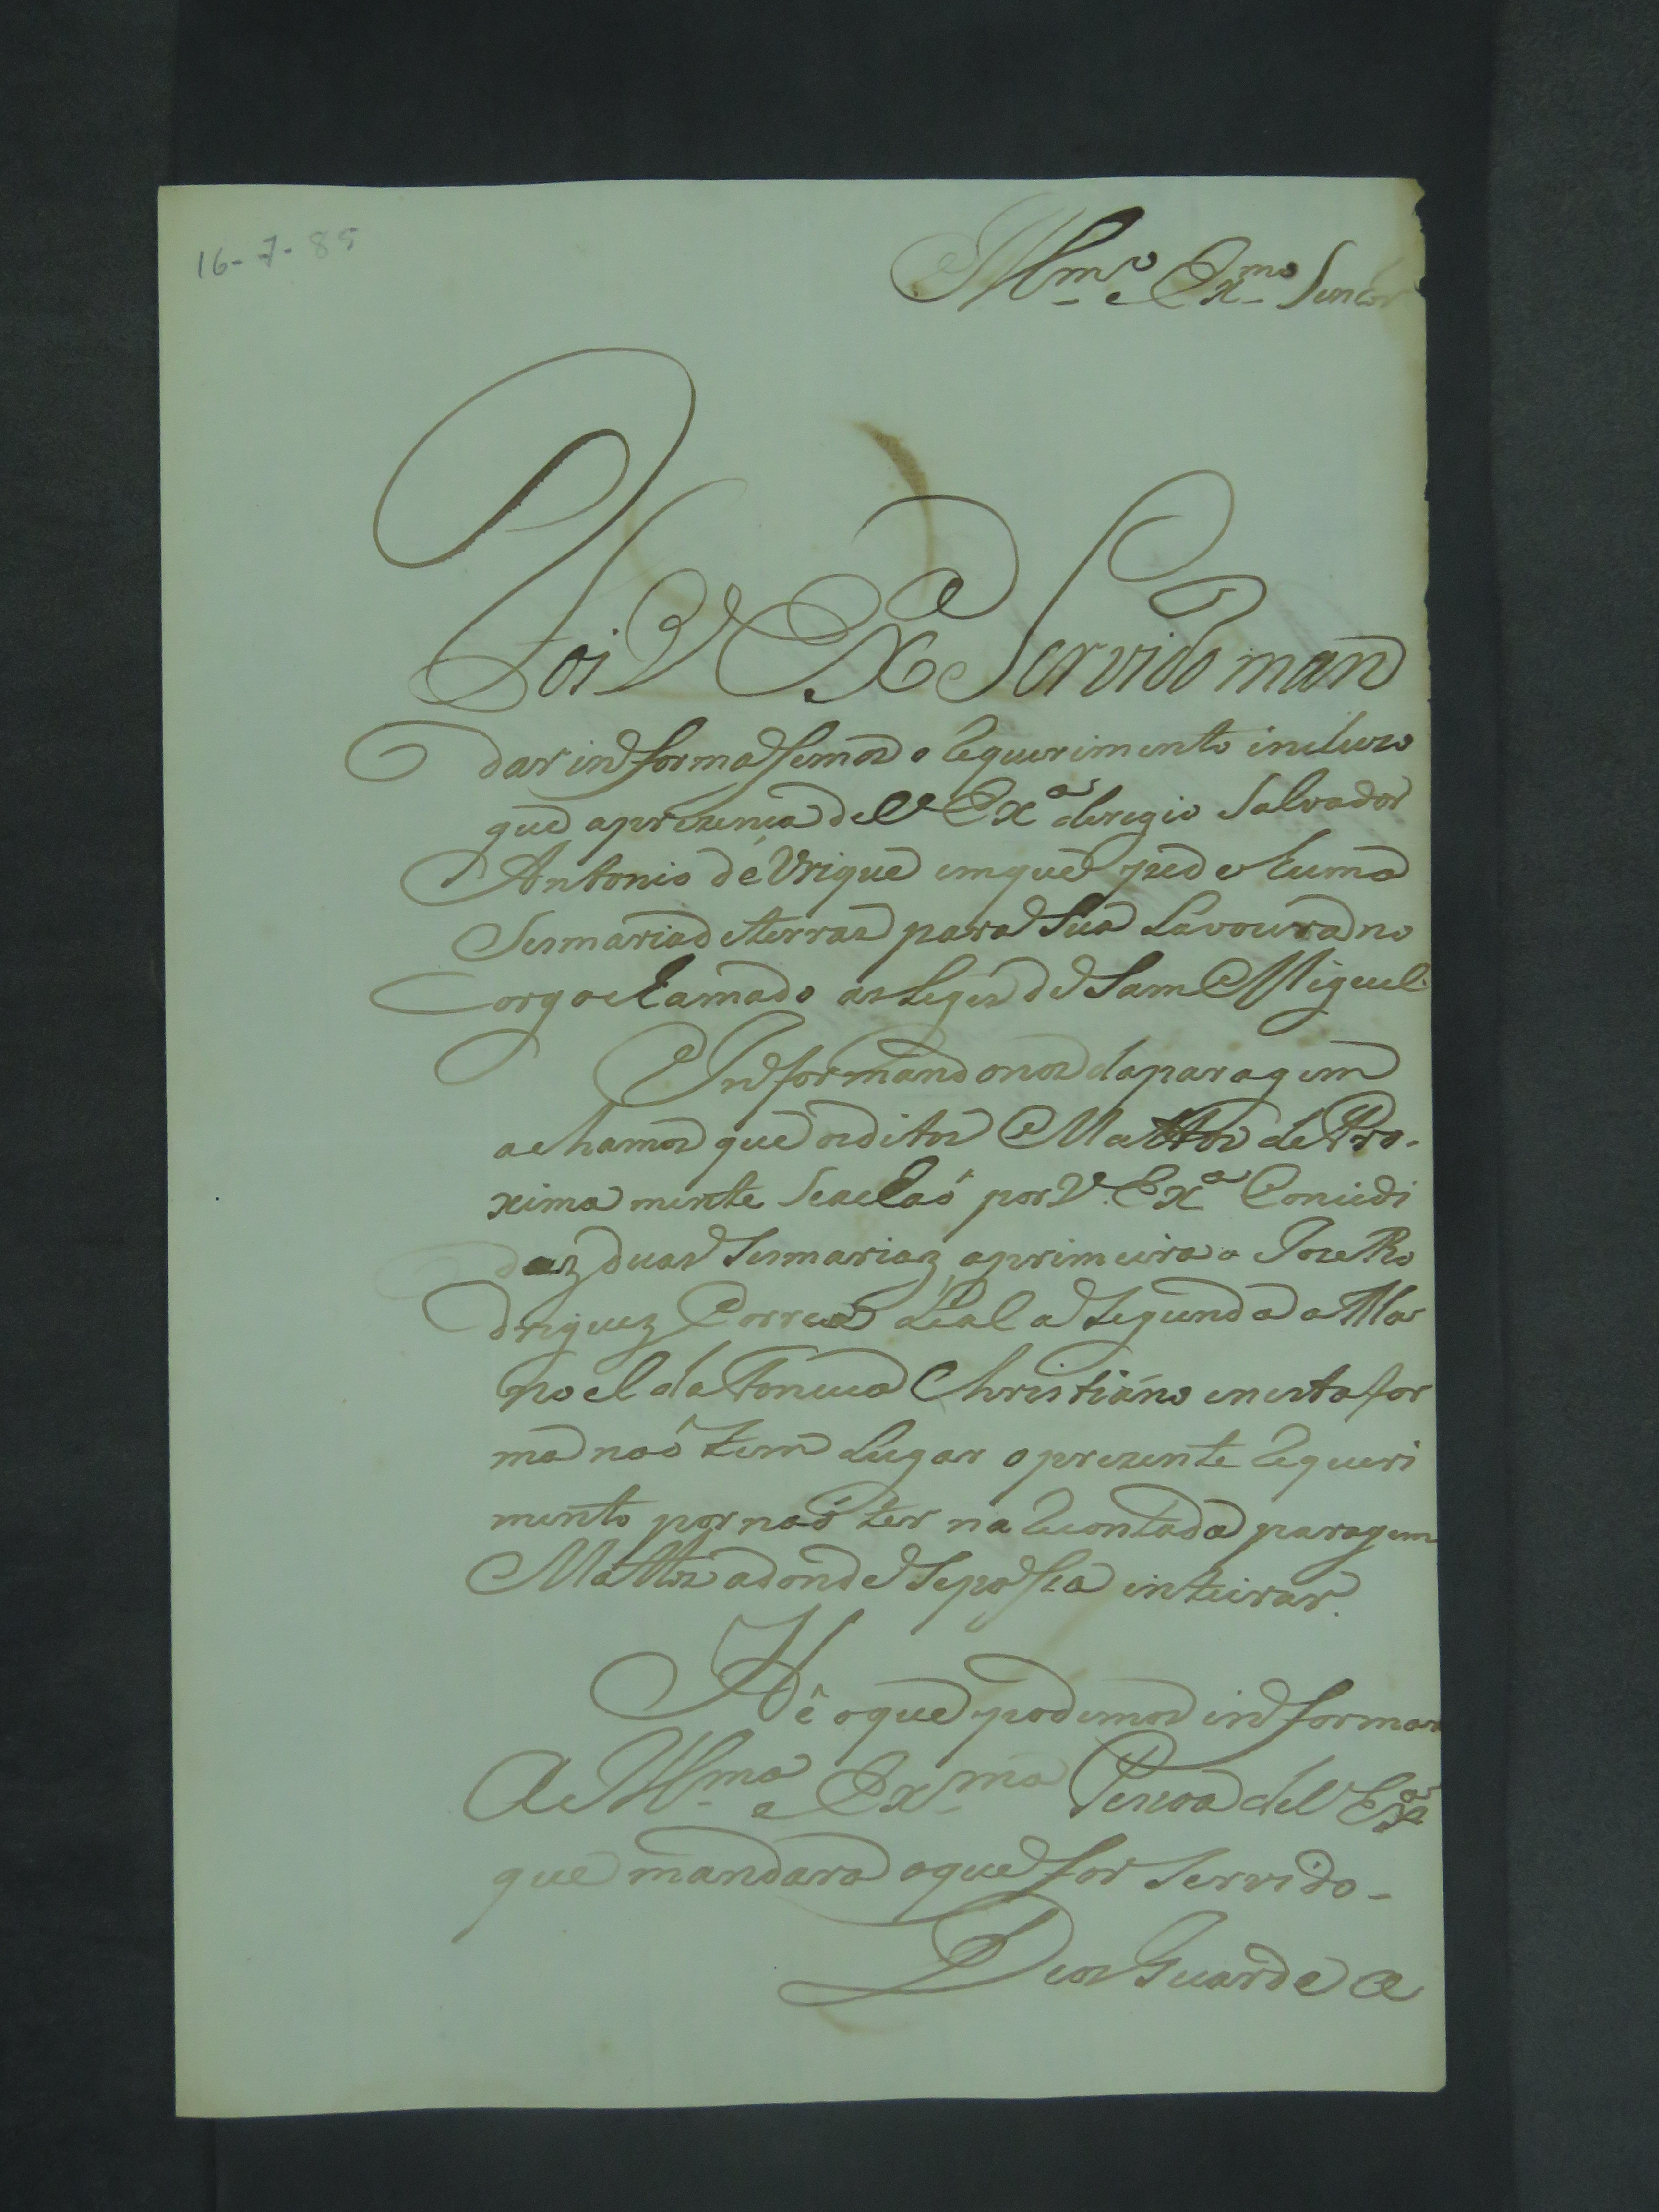 16-7-85
Ill.mo e Ex.mo Senhor
Foi V Ex.a Servido man
dar informassemos o Requerimento incluzo
que aprezenta de V Ex.a Salvador
Antonio de Vrique em que pede huma
Sesmaria de terras para Sua Lavoura no
Corgo chamado as Leges de Sam Miguel.
E Informandonos da paragem
achamos que os ditos Mattos de Pro-
xima mente Se achaõ por V. Ex.a Concedi
daz duas Sesmariaz, a primeira a Joze Ro
driguez Correa Leal a Segunda a Ma
noel da Fonceca Christiáno e nesta for
ma naõ tem Lugar o prezente Requeri
mento por naõ ter na Recontada paragem
Mattos adonde Se possa inteirar.
Hé o que podemos informar
A Ill.ma e Ex.ma Pessoa de V Ex.a
que mandara o que for Servido-
Deos Guarde a